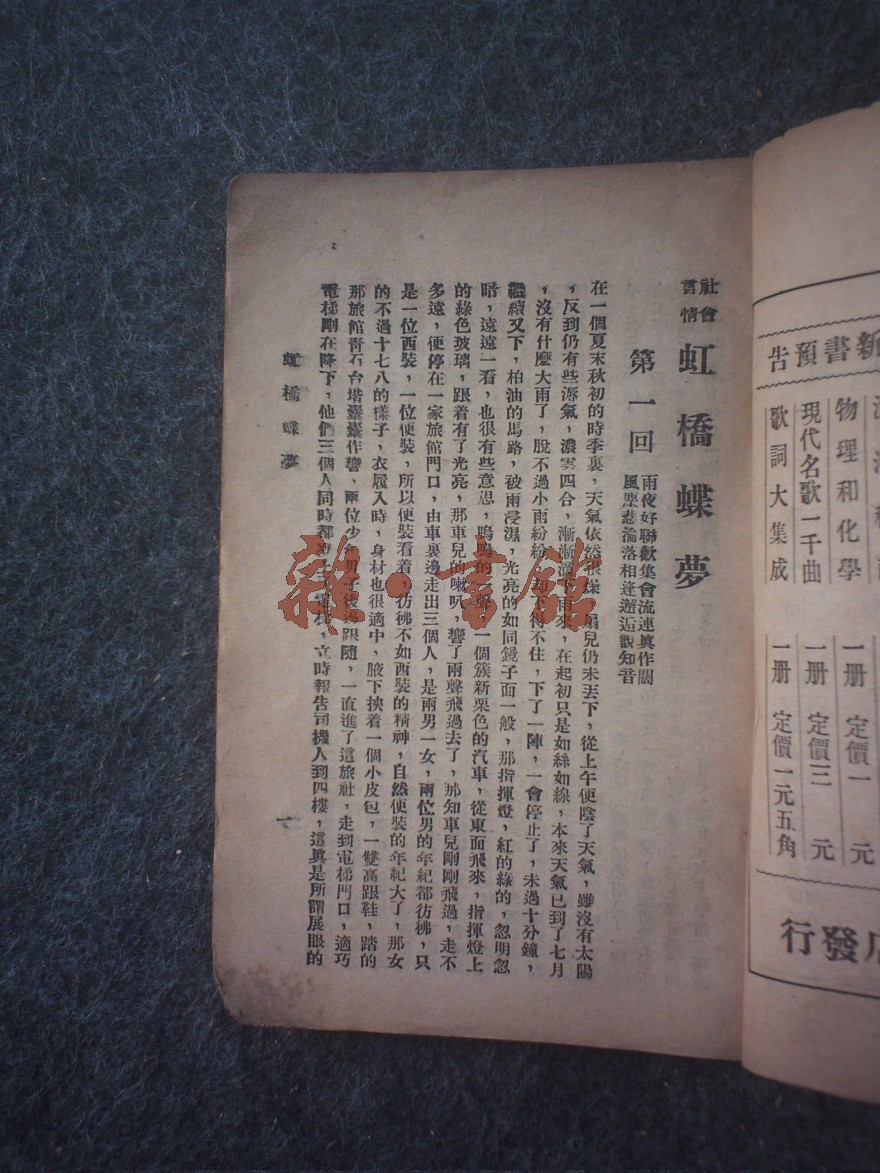 新書預告
物理和化學 一册 定價一元
現代名歌一千曲 一册 定價三元
歌詞大集成 一册 定價一元五角
發行
社會
言情
虹橋蝶夢
第一回
雨夜好聯歡集會流連眞作闊
風塵悲淪落相逢邂逅訴知音
在一個夏末秋初的時季裏，天氣依然很燥，扇兒仍未丟下，從上午便陰了天氣，雖沒有太陽
，反到仍有些溽氣，濃雲四合，漸漸滴下雨來，在起初只是如絲如線，本來天氣已到了七月
，沒有什麼大雨了，脫不過小雨紛紛，却不得不住，下了一陣，一會停止了，未過十分鐘，
繼續又下，柏油的馬路，被雨浸濕，光亮的如同鏡子面一般，那指揮燈，紅的綠的，忽明忽
暗，遠遠一看，也很有些意思，嗚嗚的一聲，一個簇新栗色的汽車，從東面飛來，指揮燈上
的綠色玻璃，跟着有了光亮，那車兒的喇叭，響了兩聲飛過去了，那知車兒剛剛飛過，走不
多遠，便停在一家旅館門口，由車裏邊走出三個人，是兩男一女，兩位男的年紀都彷彿，只
是一位西裝，一位便裝，所以便裝看着，彷彿不如西裝的精神，自然便裝的年紀大了，那女
的不過十七八的樣子，衣履入時，身材也很適中，腋下挾着一個小皮包，一雙高跟鞋，踏的
那旅館靑石台堦囊囊作響，兩位少年男子後邊跟隨，一直進了這旅社，走到電梯門口，適巧
電梯剛在降下，他們三個人同時都上了電梯，立時報告司機人到四樓，這眞是所謂展眼的
虹橋蝶夢
一
雜·書館